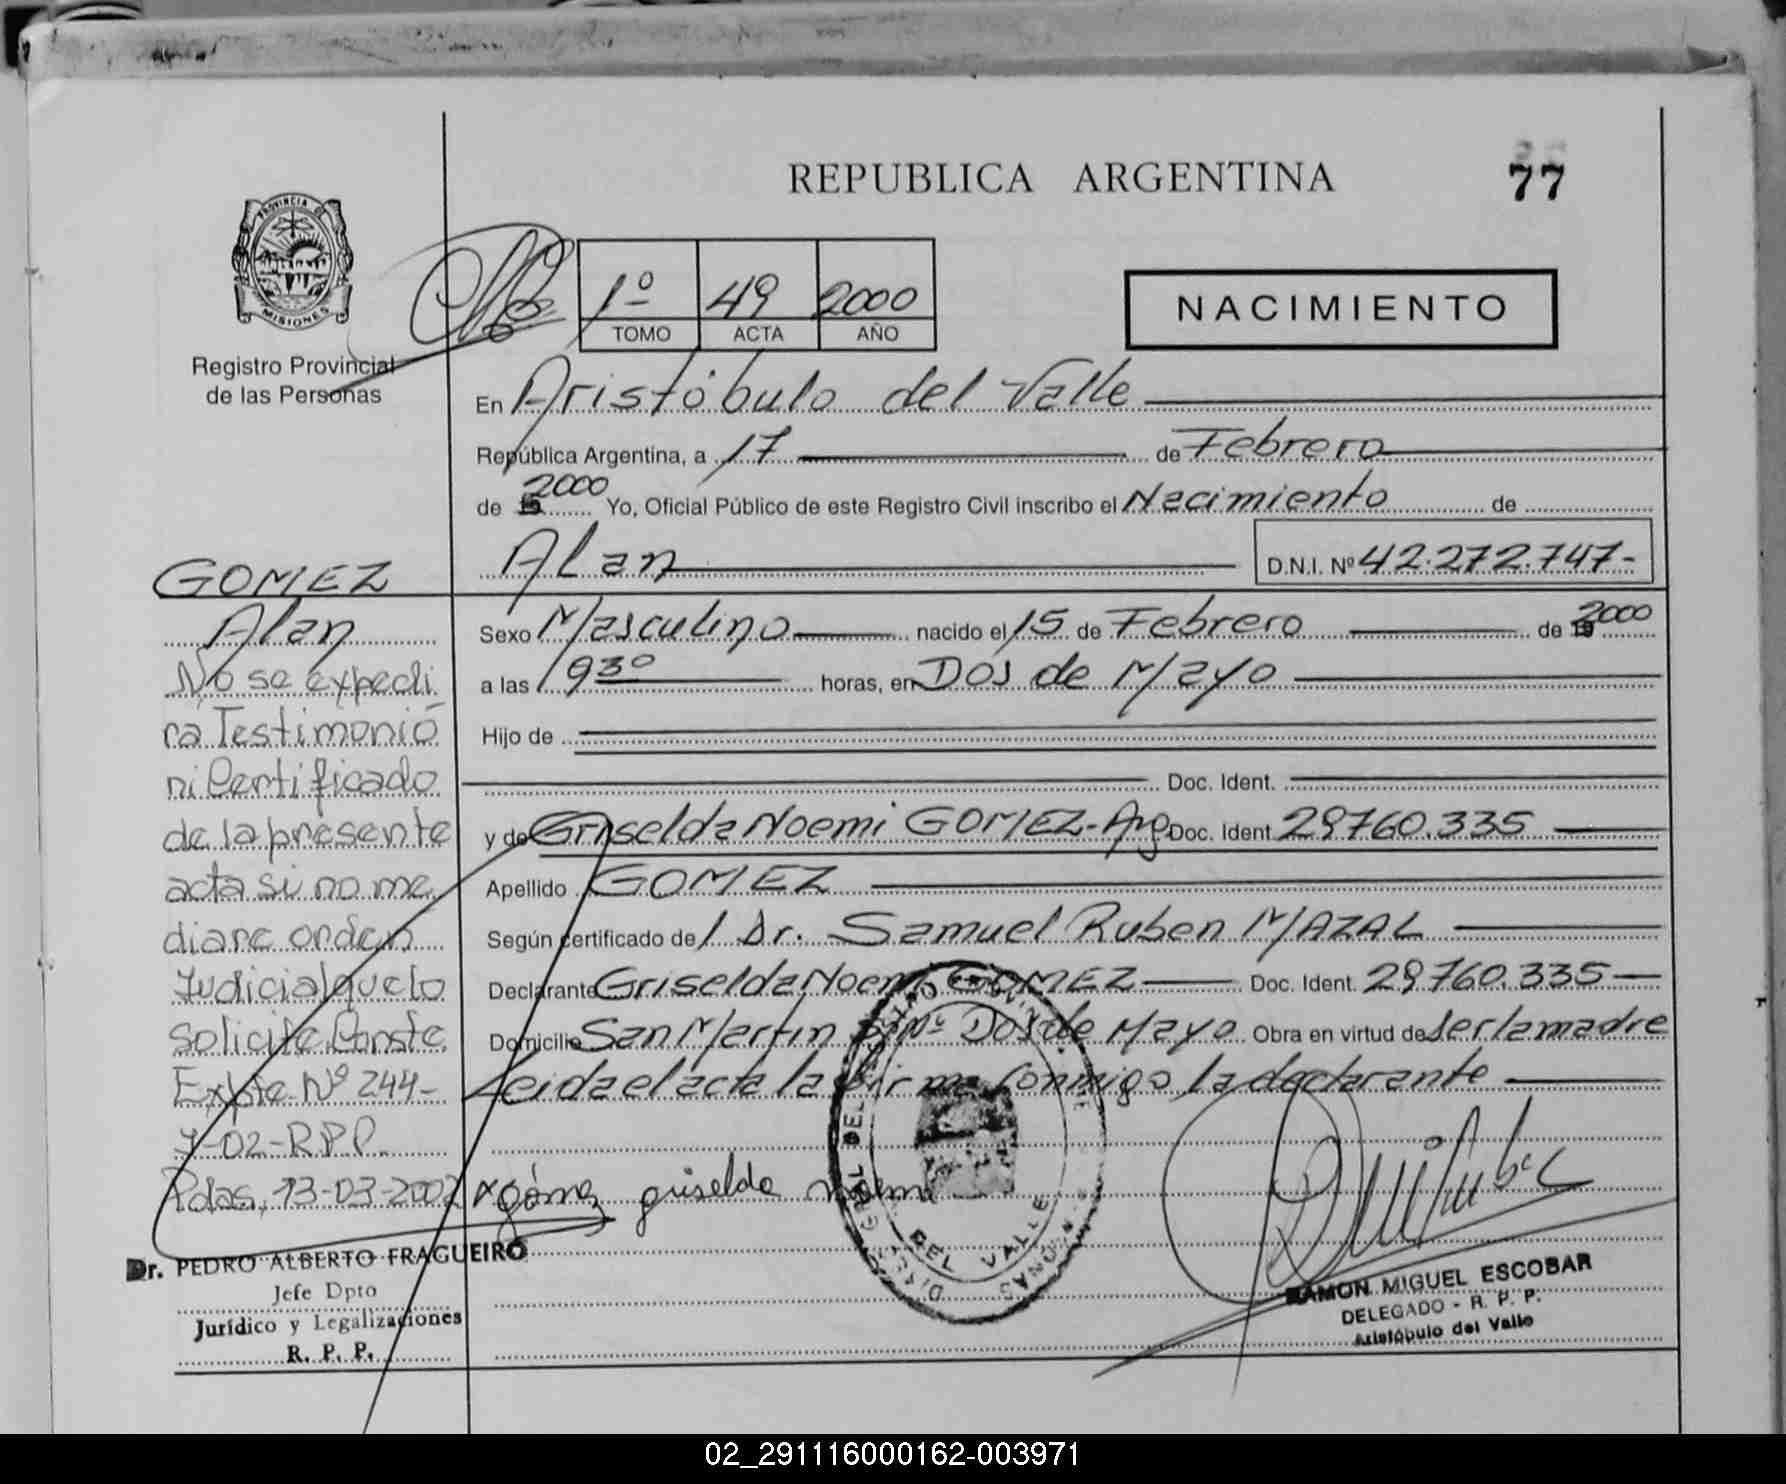 REPUBLICA ARGENTINA
77
PROVINCIA DE
MISIONES
Registro Provincial
de las Personas
1º 49 2000
TOMO ACTA AÑO
NACIMIENTO
En Aristóbulo del Valle
República Argentina, a 17 de Febrero
de 2000 Yo, Oficial Público de este Registro Civil inscribo el Nacimiento de
Alan D.N.I. Nº 42.272.747-
Sexo Masculino nacido el 15 de Febrero de 2000
a las 1930 horas, en Dos de Mayo
Hijo de
Doc. Ident.
y de Griselda Noemi GOMEZ-Arg Doc. Ident. 29760.335
Apellido GOMEZ
Según certificado de Dr. Samuel Ruben MAZAL
Declarante Griselda Noemi GOMEZ Doc. Ident. 29760.335
Domicilio San Martin S/Nº Dos de Mayo Obra en virtud de ser la madre
Leida el acta la firma conmigo la declarante
gómez griselda noemi
GOMEZ
Alan
No se expedi
ra Testimonio
ni Certificado
de la presente
acta si no me
diare orden
Judicial que lo
solicite. Conste
Expte. Nº 244-
7-02-R.P.P.
Pdas, 13-03-2002
Dr. PEDRO ALBERTO FRAGUEIRO
Jefe Dpto
Jurídico y Legalizaciones
R. P. P.
DEL VALLE
RAMON MIGUEL ESCOBAR
DELEGADO - R. P. P.
Aristóbulo del Valle
02_291116000162-003971